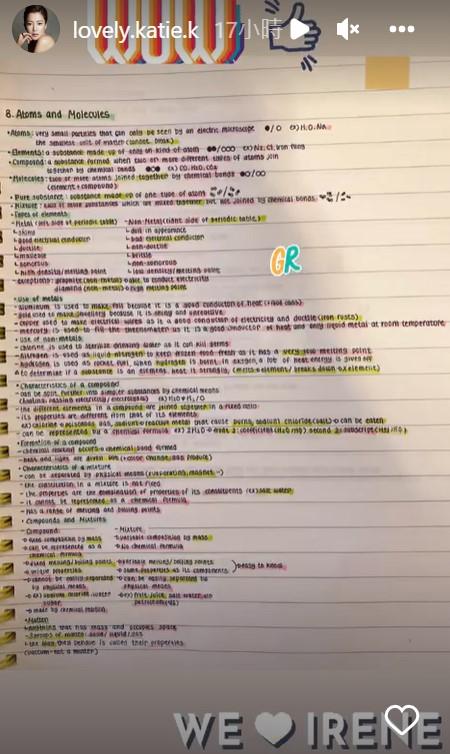 lovely.katie.k 17小時
WOW
8. Atoms and Molecules
•Atoms: very small particles that can only be seen by an electric microscope ex) H, O, Na
the smallest unit of matter (cannot break)
•Elements: a substance made up of only one kind of atom ex) N2, Cl, iron filing
•Compound: a substance formed when two or more different types of atoms join
together by chemical bonds ex) CO, H2O, CO2
•Molecules: two or more atoms joined together by chemical bonds
(element + compound)
•Pure substance: substance made up of one type of atom
•Mixture: two or more substances which are mixed together but not joined by chemical bonds
•Types of elements
-Metal (left side of periodic table) -Non-Metal (right side of periodic table)
shiny dull in appearance
good electrical conductor bad electrical conductor
ductile non-ductile
malleable brittle
sonorous non-sonorous
high density/melting point low density/melting point
exceptions: graphite (non-metal) able to conduct electricity
diamond (non-metal) high melting point
GR
•Use of metals
•aluminum is used to make foil because it is a good conductor of heat
gold used to make jewellery because it is shiny and unreactive
•copper used to make electrical wires as it is a good conductor of electricity and ductile (iron rusts)
•mercury is used to fill the thermometer as it is a good conductor of heat and only liquid metal at room temperature
•Use of non-metals
•chlorine is used to sterilize drinking water as it can kill germs
•nitrogen is used as liquid nitrogen to keep frozen food fresh as it has a very low melting point
•hydrogen is used as rocket fuel, when hydrogen is burnt in oxygen, a lot of heat energy is given off
to determine if a substance is an element, heat it strongly (melts=element/ breaks down≠element)
•Characteristics of a compound
-can be split further into simpler substances by chemical means
(heating, passing electricity/electrolysis) ex) H2O→H2/O
-the different elements in a compound are joined together in a fixed ratio
-its properties are different from that of its elements
ex) chlorine = poisonous gas, sodium = reactive metal that cause burns, sodium chloride (salt)→can be eaten
-can be represented by a chemical formula ex) 2H2O
•Formation of a compound
-chemical reaction occurs→chemical bond formed
-heat and light are given off
•Characteristics of a mixture
-can be separated by physical means (evaporating, magnet~)
-the constitution in a mixture is not fixed
-the properties are the combination of properties of its constituents (ex) salt water
-it cannot be represented as a chemical formula
-has a range of melting and boiling points
•Compounds and Mixtures
-Compound: -Mixture:
fixed composition by mass variable composition by mass
can be represented as a No chemical formula
chemical formula
fixed melting/boiling points variable melting/boiling points
unique properties same properties as its components easy to know
cannot be easily separated can be easily separated by
by physical means physical means
ex) sodium chloride, water ex) fruit juice, salt water, air
sugar
made by chemical reaction
•Matter
-anything that has mass and occupies space
-3 groups of matter: solid/liquid/gas
-the way they behave is called their properties
(vacuum-not a matter)
WE IRENE